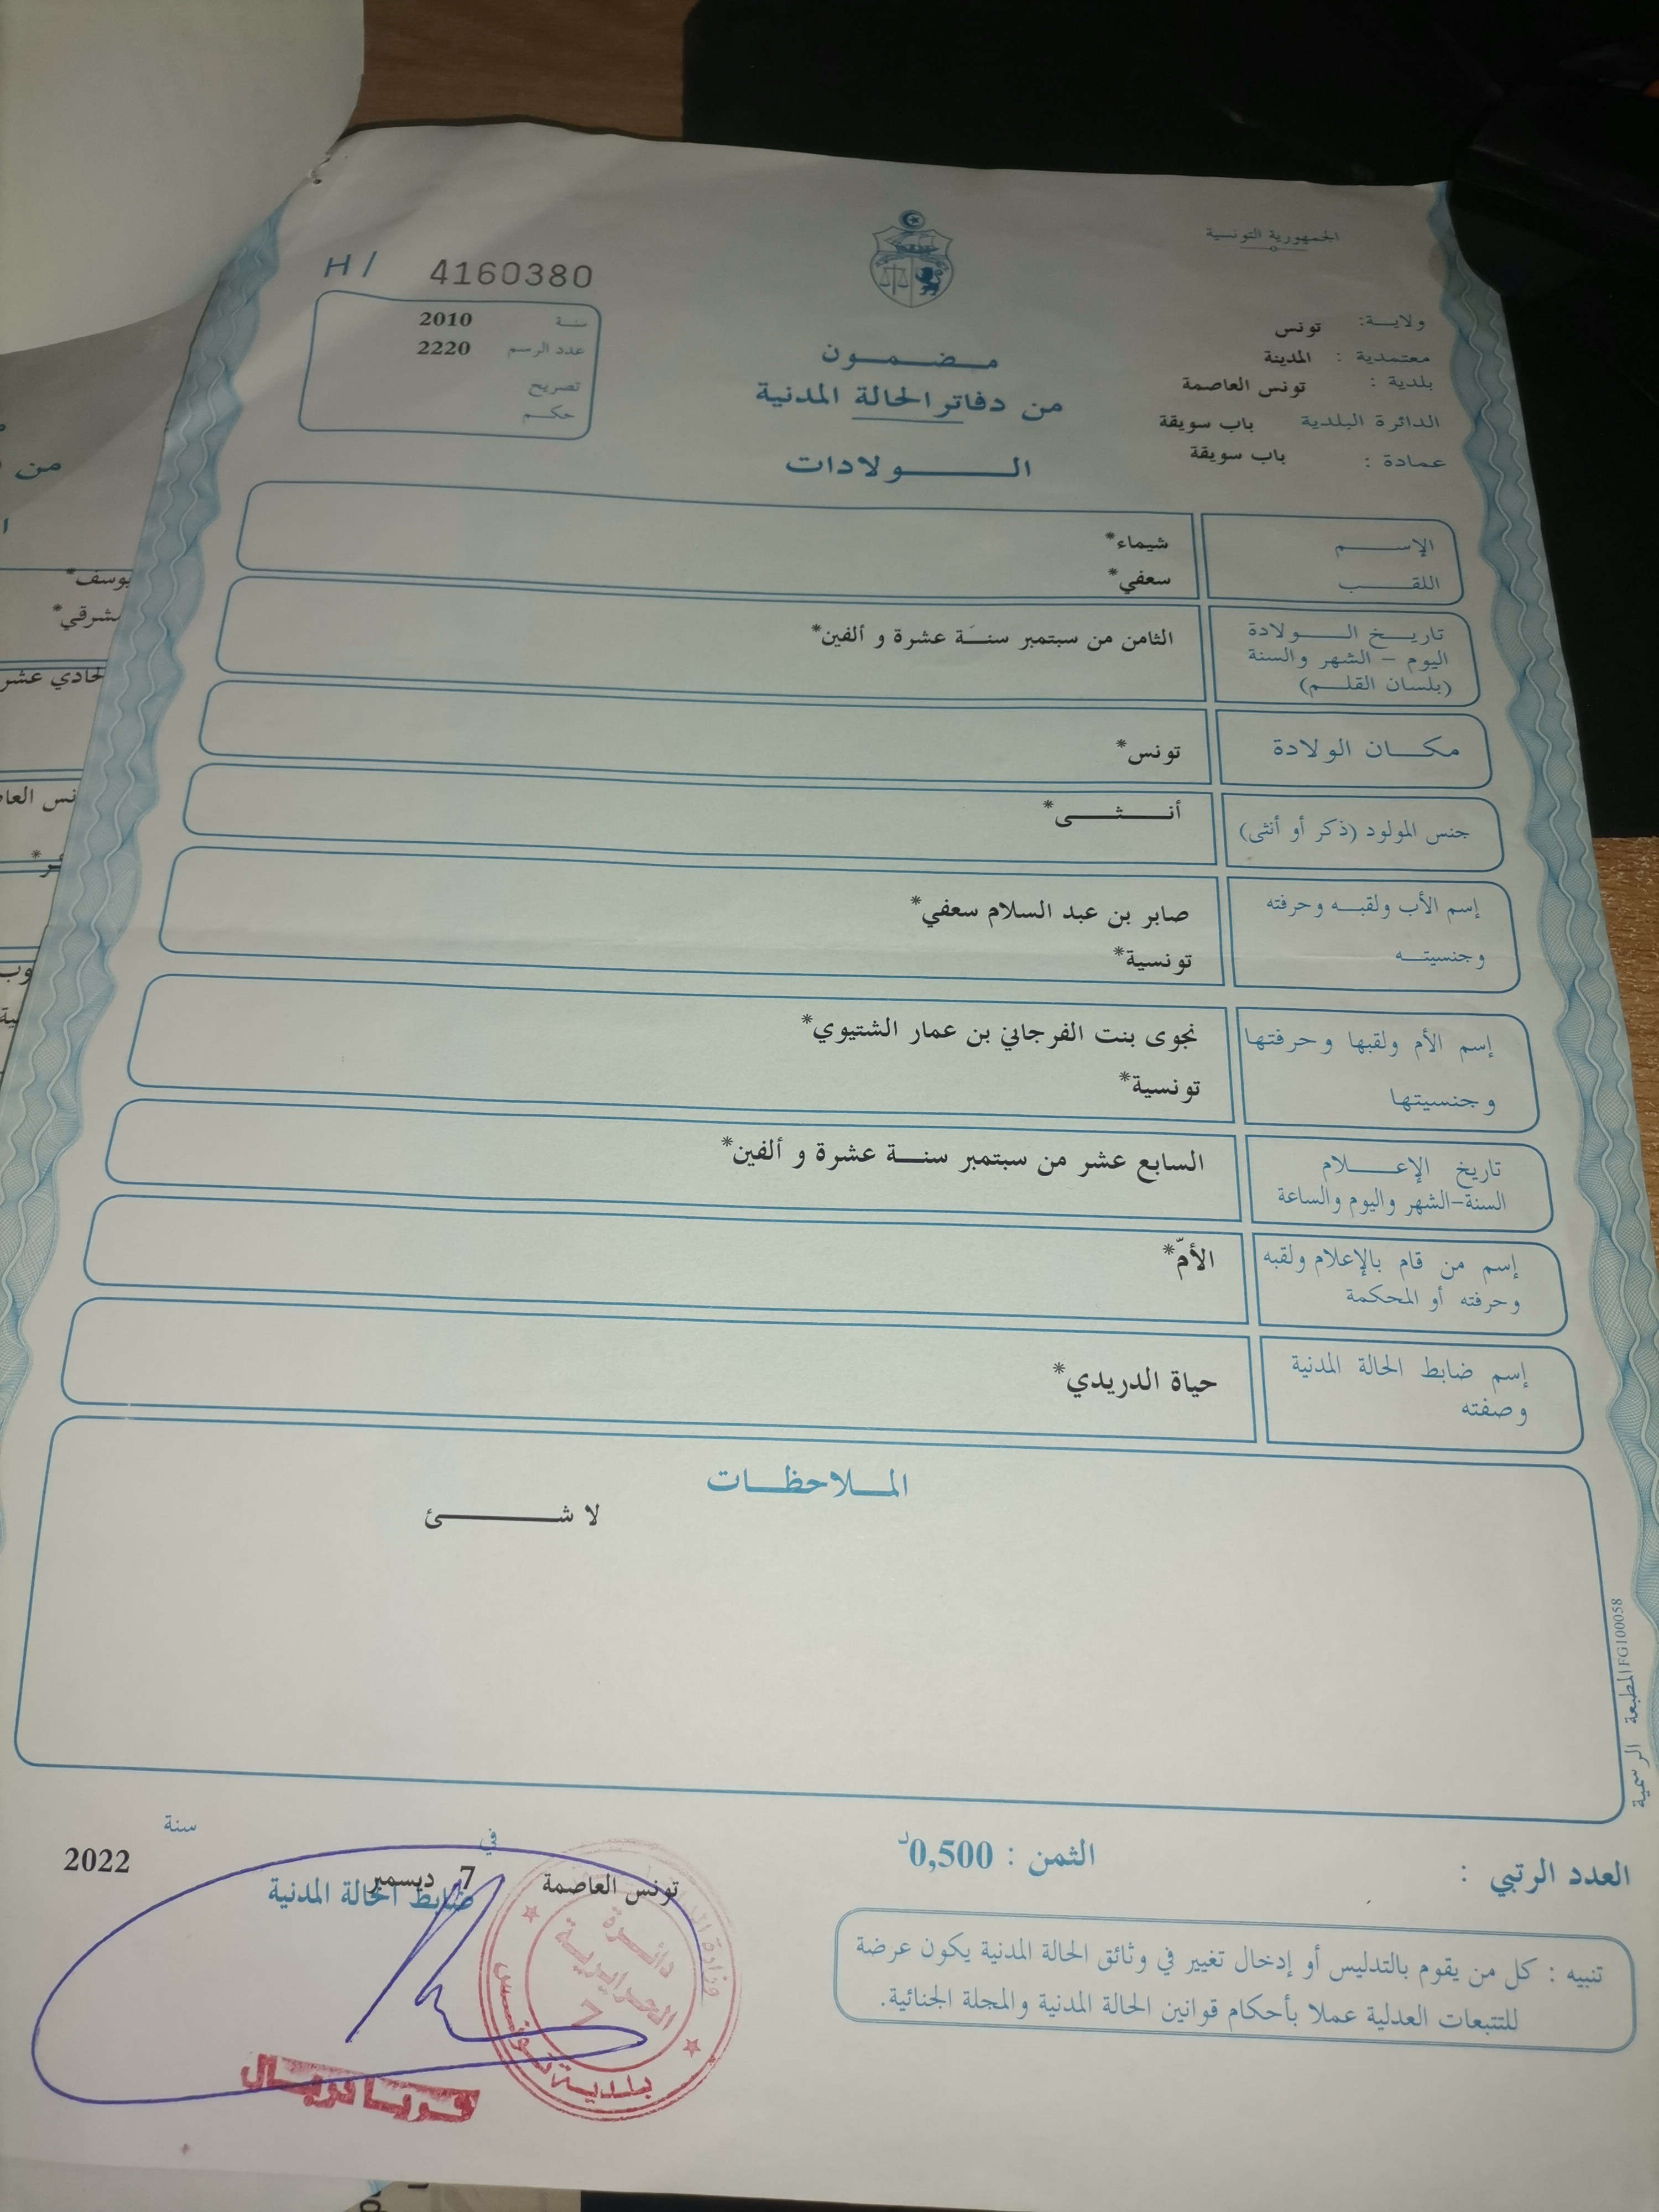 الجمهورية التونسية
ولايـــة: تونس
معتمدية : المدينة
بلدية : تونس العاصمة
الدائرة البلدية باب سويقة
عمادة : باب سويقة
مـضـمـــون
من دفاتر الحالة المدنية
الـــــولادات
H/ 4160380
سنة 2010
عدد الرسم 2220
تصريح
حكـم
الإســـــم شيماء*
اللقـــب سعفي*
تاريـــخ الـــــولادة الثامن من سبتمبر سنـة عشرة و ألفين*
اليوم - الشهر والسنة
(بلسان القلـــم)
مكـــان الولادة تونس*
جنس المولود (ذكر أو أنثى) أنـــثـــى*
إسم الأب ولقبـــه وحرفته صابر بن عبد السلام سعفي*
وجنسيتـــه تونسية*
إسم الأم ولقبها وحرفتها نجوى بنت الفرجاني بن عمار الشتيوي*
وجنسيتها تونسية*
تاريخ الإعـــــلام السابع عشر من سبتمبر سنـــة عشرة و ألفين*
السنة-الشهر واليوم والساعة
إسم من قام بالإعلام ولقبه الأمّ*
وحرفته أو المحكمة
إسم ضابط الحالة المدنية حياة الدريدي*
وصفته
المـــلاحظـــات
لا شـــــئ
المطبعة الرسمية FG100058
العدد الرتبي :
الثمن : 0,500د
تونس العاصمة في 7 ديسمبر سنة 2022
ضابط الحالة المدنية
تنبيه : كل من يقوم بالتدليس أو إدخال تغيير في وثائق الحالة المدنية يكون عرضة
للتتبعات العدلية عملا بأحكام قوانين الحالة المدنية والمجلة الجنائية.
دائرة
7
بلدية تونس
من
يوسف*